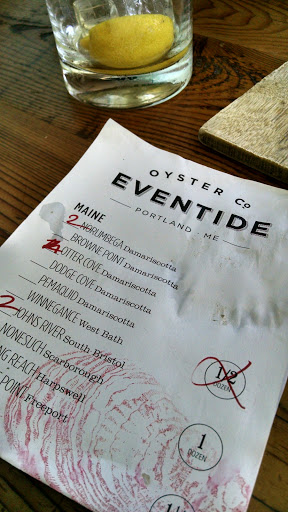 OYSTER Co
EVENTIDE
PORTLAND, ME
MAINE
2 NORUMBEGA Damariscotta
BROWNE POINT Damariscotta
OTTER COVE Damariscotta
DODGE COVE Damariscotta
PEMAQUID Damariscotta
WINNEGANCE West Bath
2 JOHNS RIVER South Bristol
NONESUCH Scarborough
NG BEACH Harpswell
POINT Freeport
1/2
DOZEN
1
DOZEN